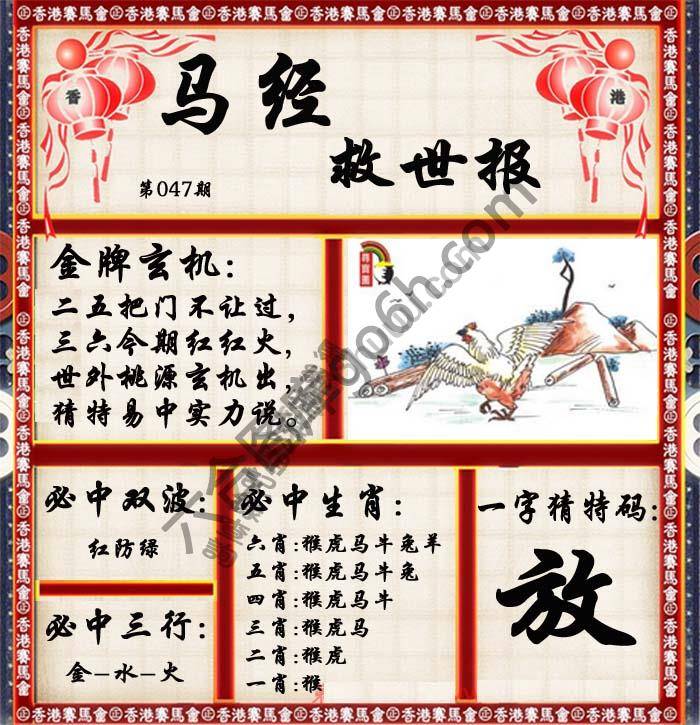 香港賽馬會
香
港
马经
救世报
第047期
金牌玄机：
二五把门不让过，
三六今期红红火，
世外桃源玄机出，
猜特易中实力说。
必中双波：
红防绿
必中三行：
金-水-火
必中生肖：
六肖:猴虎马牛兔羊
五肖:猴虎马牛兔
四肖:猴虎马牛
三肖:猴虎马
二肖:猴虎
一肖:猴
一字猜特码：
放